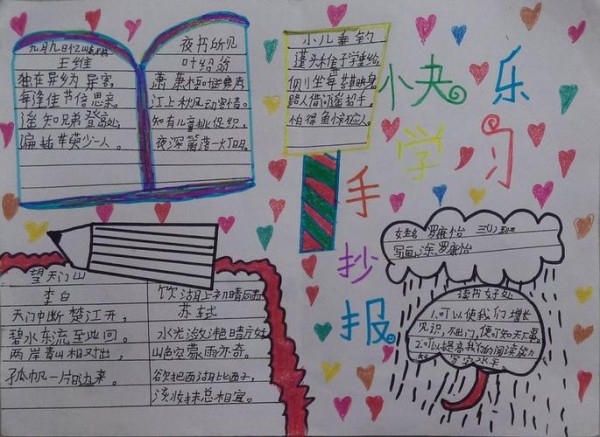 九月九日忆山东兄弟
王维
独在异乡为异客，
每逢佳节倍思亲。
遥知兄弟登高处，
遍插茱萸少一人。
夜书所见
叶绍翁
萧萧梧叶送寒声，
江上秋风动客情。
知有儿童挑促织，
夜深篱落一灯明。
小儿垂钓
蓬头稚子学垂纶，
侧坐莓苔草映身。
路人借问遥招手，
怕得鱼惊不应人。
快乐
学习
手
抄
报
望天门山
李白
天门中断楚江开，
碧水东流至此回。
两岸青山相对出，
孤帆一片日边来。
饮湖上初晴后雨
苏轼
水光潋滟晴方好
山色空蒙雨亦奇。
欲把西湖比西子，
淡妆浓抹总相宜。
姓名 罗 怡 三(1)班
写画、涂 罗 怡
读书好处
1.可以使我们增长
见识，不出门，便可知天下事。
2.可以提高我们的阅读能力